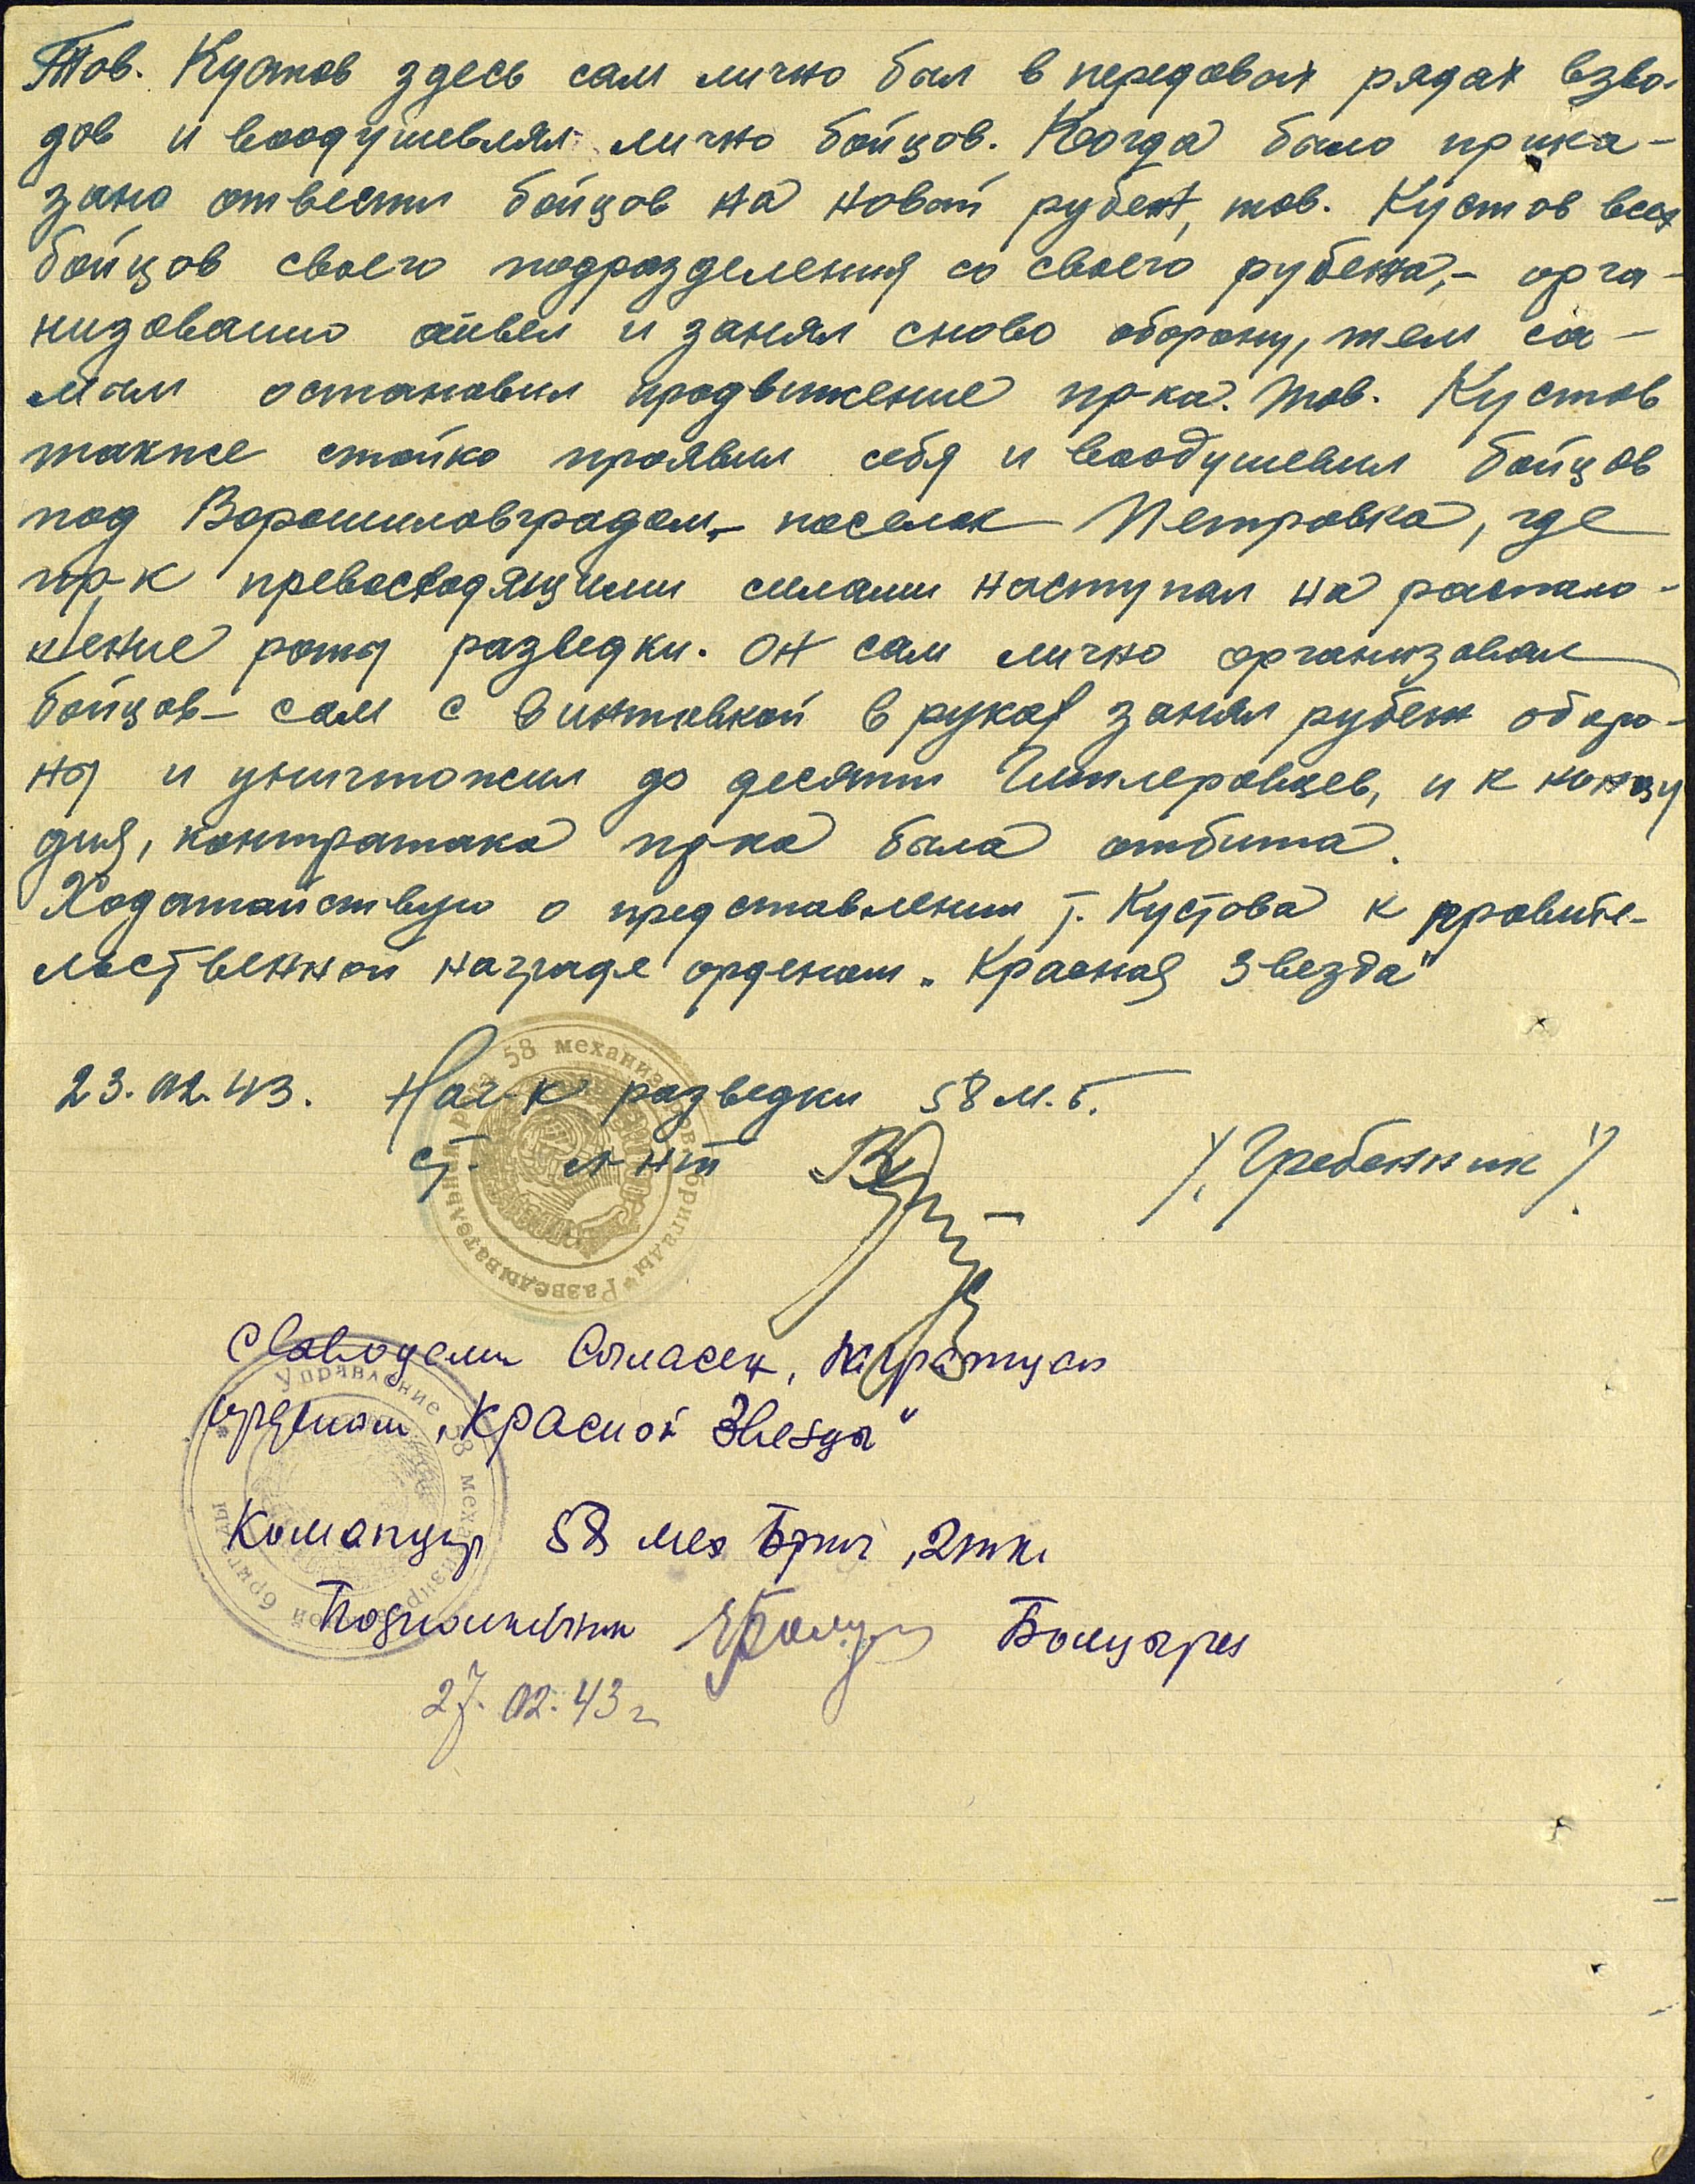 Тов. Кустов здесь сам лично был в передовых рядах взво-
дов и воодушевлял лично бойцов. Когда было прика-
зано отвести бойцов на новый рубеж, тов. Кустов всех
бойцов своего подразделения со своего рубежа,- орга-
низованно отвел и занял сново оборону, тем са-
мым остановил продвижение пр-ка. Тов. Кустов
также стойко проявил себя и воодушевил бойцов
под Ворошиловградом,- поселок Петровка, где
пр-к превосходящими силами наступал на располо-
жение роты разведки. Он сам лично организовал
бойцов- сам с винтовкой в руках занял рубеж оборо-
ны и уничтожил до десяти Гитлеровцев, и к концу
дня, контратака пр-ка была отбита.
Ходатайствую о представлении т. Кустова к правите-
льственной награде орденом „Красная Звезда"
23.02.43. Нач-к разведки 58 м.б.
ст. л-нт /Гребенник/.
58 механизиров. бригады * Разведывательная рота
С выводами согласен, достоин
орденом „Красной Звезды"
Управление 58 механизированной бригады
Командир 58 мех Бриг, 2тк.
Подполковник
27.02.43 г